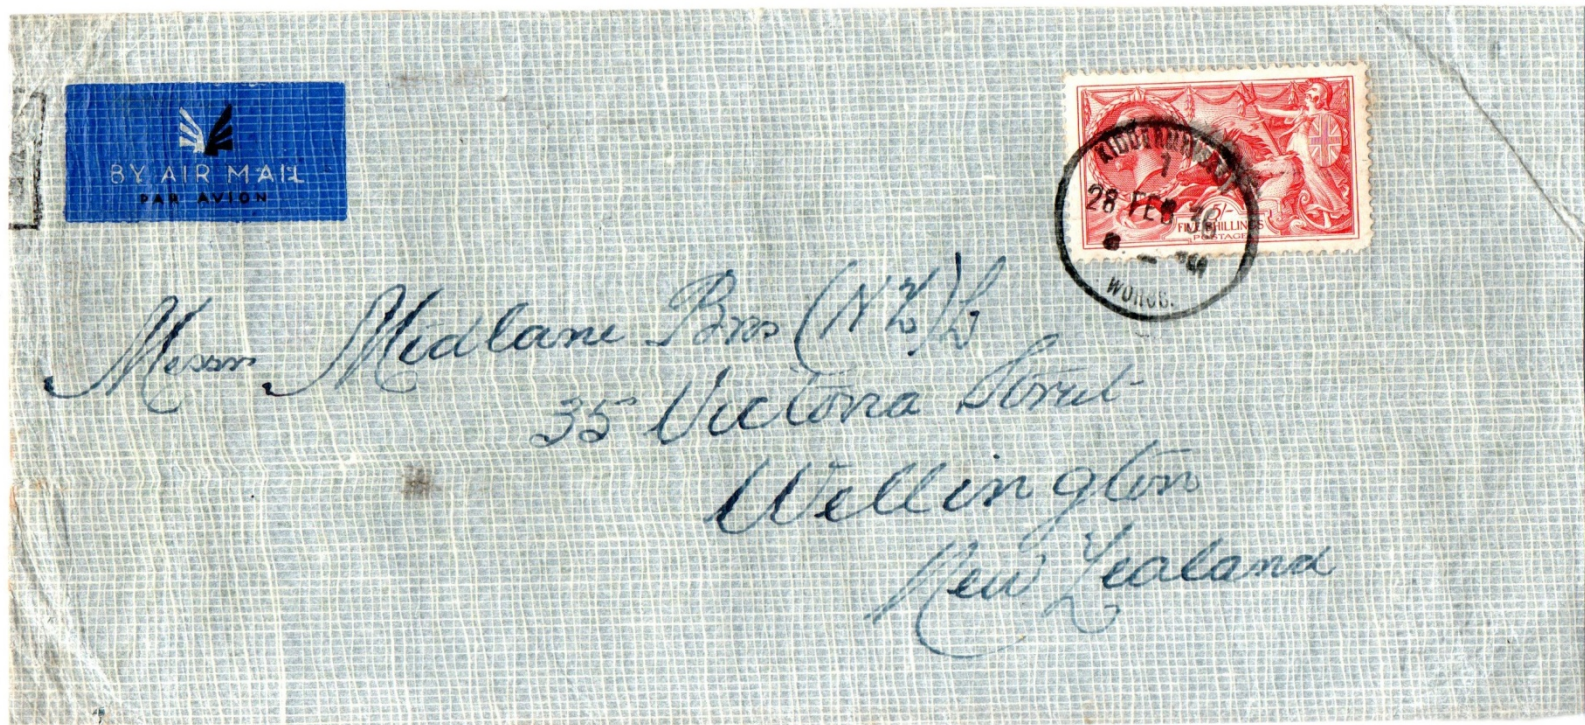 BY AIR MAIL
PAR AVION
KIDDERMINSTER
1
28 FEB 36
WORCS.
5/-
FIVE SHILLINGS
POSTAGE
Messrs Midlane Bros (NZ) L
35 Victoria Street
Wellington
New Zealand